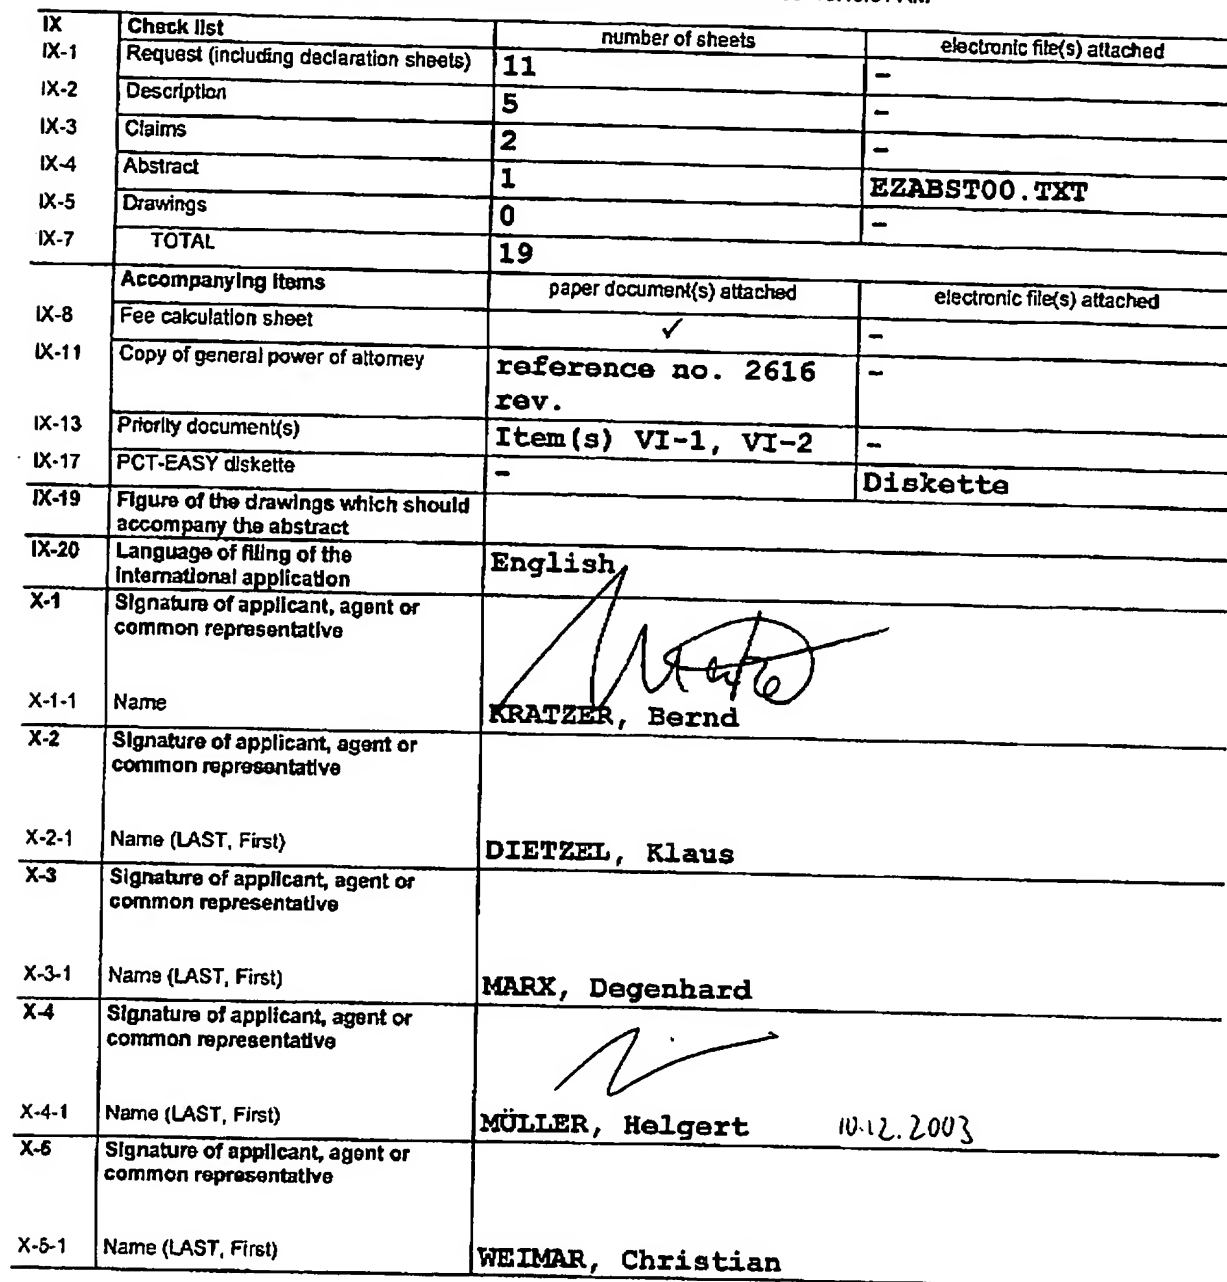 IX Check list number of sheets electronic file(s) attached
IX-1 Request (including declaration sheets) 11 -
IX-2 Description 5 -
IX-3 Claims 2 -
IX-4 Abstract 1 EZABST00.TXT
IX-5 Drawings 0 -
IX-7 TOTAL 19
Accompanying items paper document(s) attached electronic file(s) attached
IX-8 Fee calculation sheet ✓ -
IX-11 Copy of general power of attorney reference no. 2616 -
rev.
IX-13 Priority document(s) Item(s) VI-1, VI-2 -
IX-17 PCT-EASY diskette - Diskette
IX-19 Figure of the drawings which should
accompany the abstract
IX-20 Language of filing of the English
international application
X-1 Signature of applicant, agent or
common representative
X-1-1 Name KRATZER, Bernd
X-2 Signature of applicant, agent or
common representative
X-2-1 Name (LAST, First) DIETZEL, Klaus
X-3 Signature of applicant, agent or
common representative
X-3-1 Name (LAST, First) MARX, Degenhard
X-4 Signature of applicant, agent or
common representative
X-4-1 Name (LAST, First) MÜLLER, Helgert 10.12.2003
X-5 Signature of applicant, agent or
common representative
X-5-1 Name (LAST, First) WEIMAR, Christian